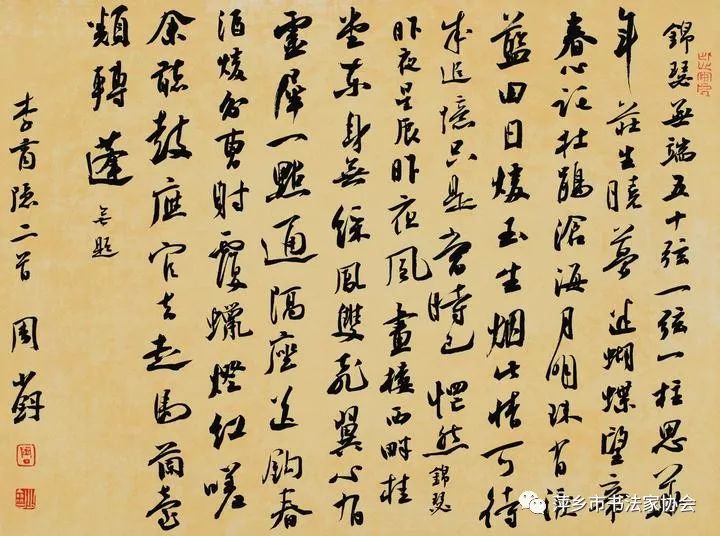 錦瑟無端五十弦一弦一柱思華
年莊生曉夢迷蝴蝶望帝
春心託杜鵑滄海月明珠有淚
藍田日煖玉生烟此情可待
成追憶只是當時已惘然 錦瑟
昨夜星辰昨夜風畫樓西畔桂
堂東身無綵鳳雙飛翼心有
靈犀一點通隔座送鉤春
酒煖分曹射覆蠟燈紅嗟
余聽鼓應官去走馬蘭臺
類轉蓬 無題
李商隱二首 周
萍乡市书法家协会